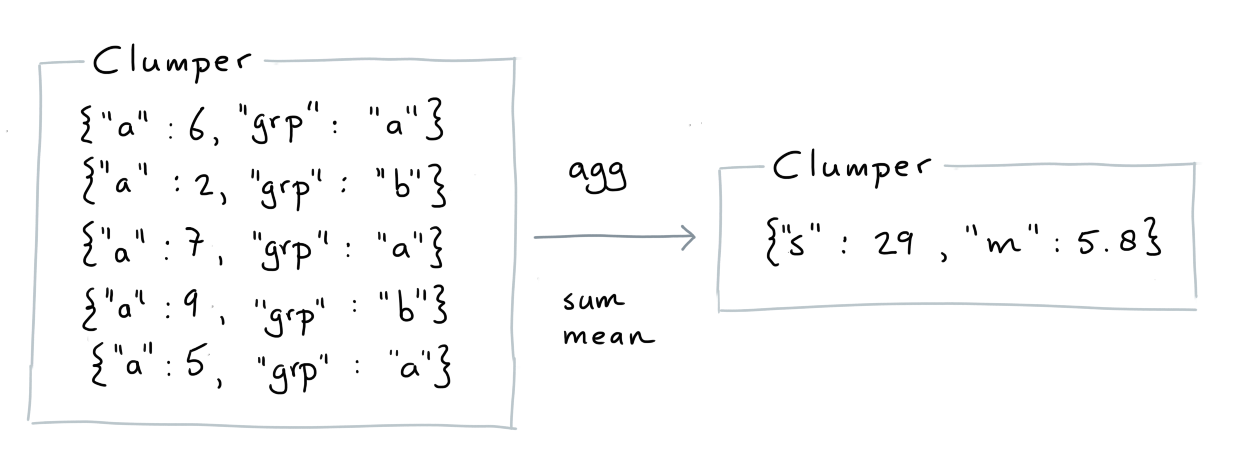 Clumper
{"a" : 6, "grp" : "a"}
{"a" : 2, "grp" : "b"}
{"a" : 7, "grp" : "a"}
{"a" : 9, "grp" : "b"}
{"a" : 5, "grp" : "a"}
agg
sum
mean
Clumper
{"s" : 29 , "m" : 5.8}